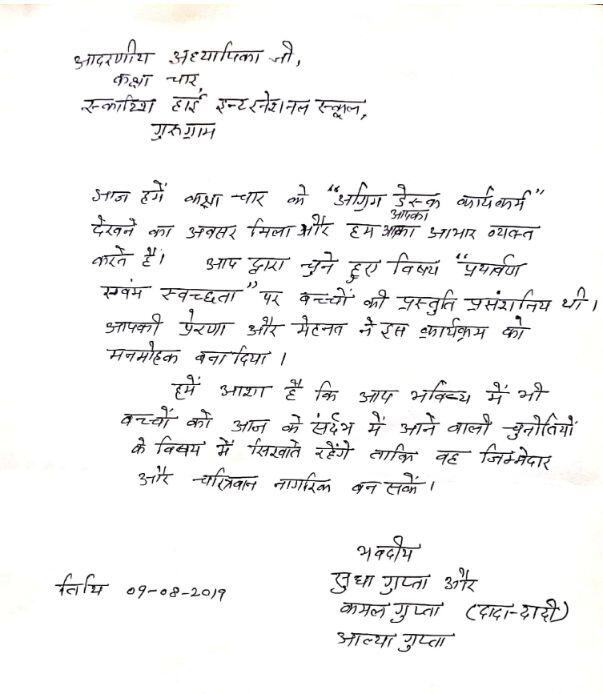 आदरणीय अध्यापिका जी,
कक्षा चार,
स्काटिश हाई इन्टरनेशनल स्कूल,
गुरुग्राम
आज हमें कक्षा चार को "अगिग डेस्क कार्यकर्म"
देखने का अवसर मिला और हम आपका आभार व्यक्त
करते हैं। आप द्वारा चुने हुए विषय "प्रयार्वण
एवंम स्वच्छता" पर बच्चों की प्रस्तुति प्रसंशानिय थी।
आपकी प्रेरणा और मेहनत ने इस कार्यक्रम को
मनमोहक बना दिया।
हमें आशा है कि आप भविष्य में भी
बच्चों को आज के संर्दभ में आने वाली चुनोतियों
के विषय में सिखाते रहेंगे ताकि वह जिम्मेदार
और चरित्रवान नागरिक बन सकें।
भवदीय
सुधा गुप्ता और
कमल गुप्ता (दादा-दादी)
आल्या गुप्ता
तिथि 09-08-2019